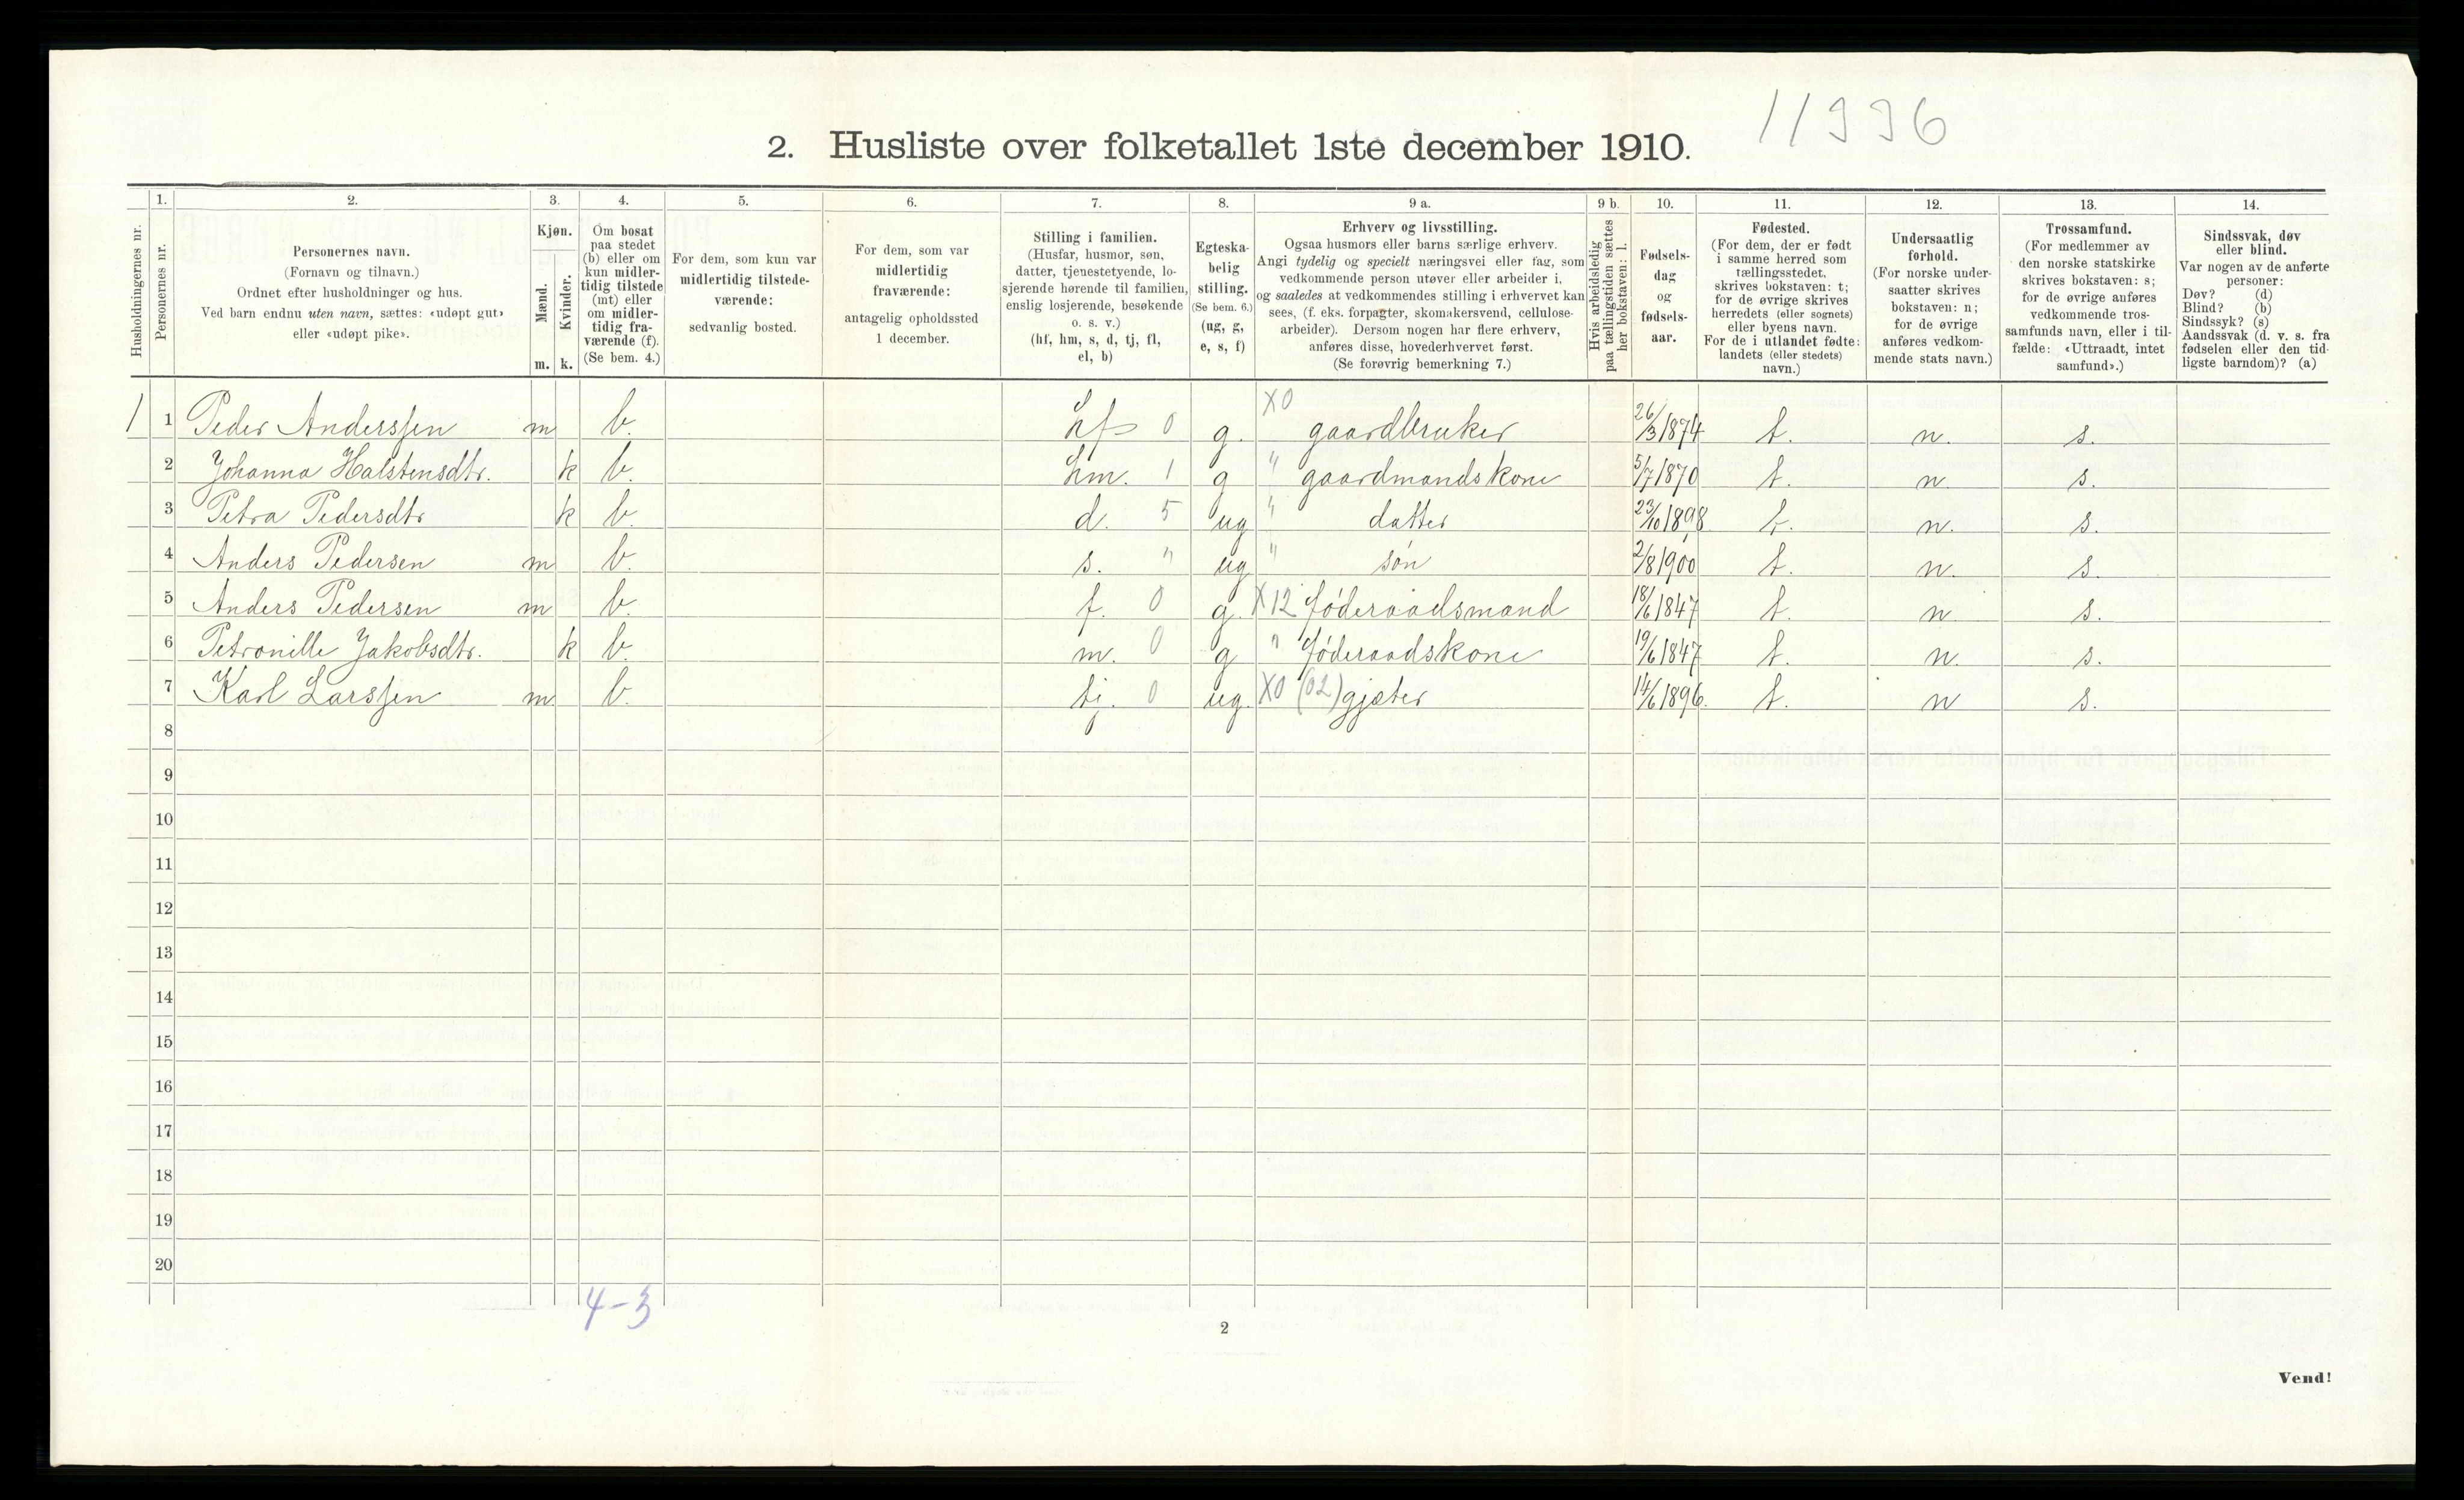 11996
2. Husliste over folketallet 1ste december 1910.
1. 2. 3. 4. 5. 6. 7. 8. 9 a. 9 b. 10. 11. 12. 13. 14.
Husholdningernes nr.
Personernes nr.
Personernes navn.
(Fornavn og tilnavn.)
Ordnet efter husholdninger og hus.
Ved barn endnu uten navn, sættes: «udøpt gut»
eller «udøpt pike».
Kjøn.
Mænd.
Kvinder.
m. k.
Om bosat
paa stedet
(b) eller om
kun midler-
tidig tilstede
(mt) eller
om midler-
tidig fra-
værende (f).
(Se bem. 4.)
For dem, som kun var
midlertidig tilstede-
værende:
sedvanlig bosted.
For dem, som var
midlertidig
fraværende:
antagelig opholdssted
1 december.
Stilling i familien.
(Husfar, husmor, søn,
datter, tjenestetyende, lo-
sjerende hørende til familien,
enslig losjerende, besøkende
o. s. v.)
(hf, hm, s, d, tj, fl,
el, b)
Egteska-
belig
stilling.
(Se bem. 6.)
(ug, g,
e, s, f)
Erhverv og livsstilling.
Ogsaa husmors eller barns særlige erhverv.
Angi tydelig og specielt næringsvei eller fag, som
vedkommende person utøver eller arbeider i,
og saaledes at vedkommendes stilling i erhvervet kan
sees, (f. eks. forpagter, skomakersvend, cellulose-
arbeider). Dersom nogen har flere erhverv,
anføres disse, hovederhvervet først.
(Se forøvrig bemerkning 7.)
Hvis arbeidsledig
paa tællingstiden sættes
her bokstaven: l.
Fødsels-
dag
og
fødsels-
aar.
Fødested.
(For dem, der er født
i samme herred som
tællingsstedet,
skrives bokstaven: t;
for de øvrige skrives
herredets (eller sognets)
eller byens navn.
For de i utlandet fødte:
landets (eller stedets)
navn.)
Undersaatlig
forhold.
(For norske under-
saatter skrives
bokstaven: n;
for de øvrige
anføres vedkom-
mende stats navn.)
Trossamfund.
(For medlemmer av
den norske statskirke
skrives bokstaven: s;
for de øvrige anføres
vedkommende tros-
samfunds navn, eller i til-
fælde: «Uttraadt, intet
samfund».)
Sindssvak, døv
eller blind.
Var nogen av de anførte
personer:
Døv? (d)
Blind? (b)
Sindssyk? (s)
Aandssvak (d. v. s. fra
fødselen eller den tid-
ligste barndom)? (a)
1 1 Peder Anderssen m b. hf 0 g. X0 gaardbruker 26/3 1874 t. n. s.
2 Johanna Halstensdtr. k b. hm. 1 g " gaardmandskone 5/7 1870 t. n. s.
3 Petra Pedersdtr k b. d. 5 ug " datter 23/10 1898 t. n. s.
4 Anders Pedersen m b. s. " ug " søn 2/8 1900 t. n. s.
5 Anders Pedersen m b. f. 0 g. X12 føderaadsmand 18/6 1847 t. n. s.
6 Petronille Jakobsdtr. k b. m. 0 g " føderaadskone 19/6 1847 t. n. s.
7 Karl Larssen m b. tj. 0 ug. X0 (02) gjæter 14/6 1896. t. n s.
8
9
10
11
12
13
14
15
16
17
18
19
20
4-3
2
Vend!